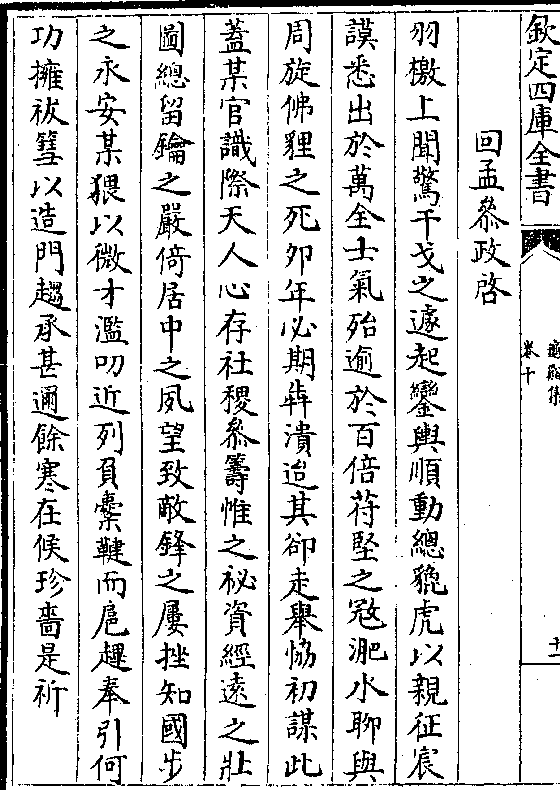 欽定四庫全書
卷十
回孟叅政啓
羽檄上聞驚干戈之遽起鑾輿順動總貔虎以親征宸
謨悉出於萬全士氣殆逾於百倍苻堅之寇淝水聊與
周旋佛貍之死夘年必期犇潰迨其卻走舉恊初謀此
蓋某官識際天人心存社稷叅籌惟之祕資經遠之壯
圖總留鑰之嚴倚居中之夙望致敵鋒之屢挫知國步
之永安某猥以微才濫叨近列負櫜鞬而扈趨奉引何
功擁祓篲以造門趨承甚邇餘寒在候珍嗇是祈